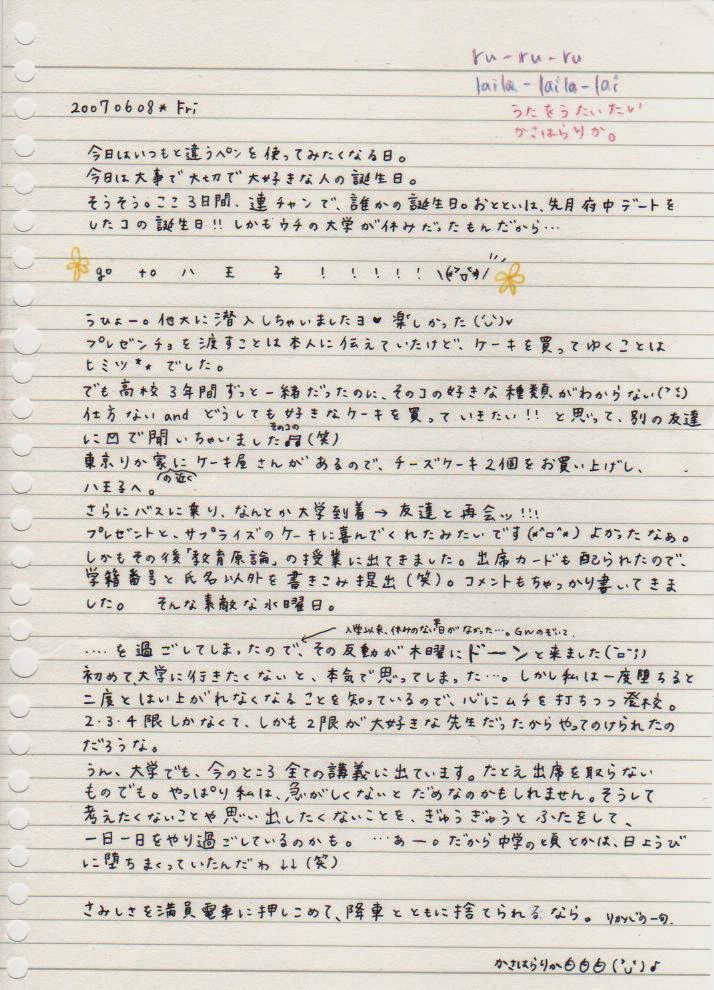 ru-ru-ru
laila-laila-lai
うたをうたいたい
かさはらりか。
20070608* Fri
今日はいつもと違うペンを使ってみたくなる日。
今日は大事で大切で大好きな人の誕生日。
そうそう。ここ3日間、連チャンで、誰かの誕生日。おとといは、先月府中デートを
したコの誕生日!! しかもウチの大学が休みだったもんだから…
go to 八王子!!!!!
うひょー。他大に潜入しちゃいましたヨ♥ 楽しかった
プレゼンチョを渡すことは本人に伝えていたけど、ケーキを買ってゆくことは
ヒミツ** でした。
でも高校3年間ずっと一緒だったのに、そのコの好きな種類がわからない
仕方ない and どうしても好きなケーキを買っていきたい!! と思って、別の友達
そのコの
に✉で聞いちゃいました♫(笑)
東京りか家にケーキ屋さんがあるので、チーズケーキ2個をお買い上げし、
の近く
八王子へ。
さらにバスに乗り、なんとか大学到着→友達と再会ッ!!!
プレゼントと、サプライズのケーキに喜んでくれたみたいです(*^o^*) よかったなぁ。
しかもその後「教育原論」の授業に出てきました。出席カードも配られたので、
学籍番号と氏名以外を書きこみ提出(笑)。コメントもちゃっかり書いてきま
した。 そんな素敵な水曜日。
入学以来、休みのない平日がなかった…。GWのぞいて。
‥‥を過ごしてしまったので、その反動が木曜にドーンと来ました
初めて、大学に行きたくないと、本気で思ってしまった…。しかし私は一度堕ちると
二度とはい上がれなくなることを知っているので、心にムチを打ちつつ登校。
2・3・4限しかなくて、しかも2限が大好きな先生だったからやってのけられたの
だろうな。
うん、大学でも、今のところ全ての講義に出ています。たとえ出席を取らない
ものでも。やっぱり私は、急がしくないとだめなのかもしれません。そうして
考えたくないことや思い出したくないことを、ぎゅうぎゅうとふたをして、
一日一日をやり過ごしているのかも。 …あー。だから中学の頃とかは、日ようび
に堕ちまくっていたんだわ↓↓(笑)
さみしさを満員電車に押しこめて、降車とともに捨てられるなら。 りかぺの一句.
かさはらりか